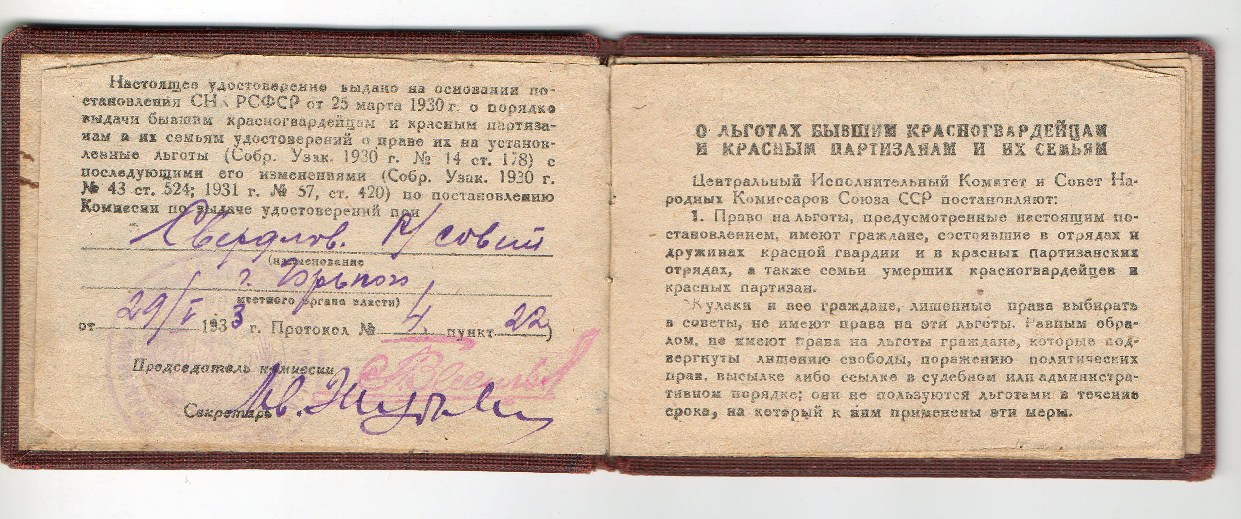 Настоящее удостоверение выдано на основании по-
становления СНК РСФСР от 25 марта 1930 г. о порядке
выдачи бывшим красногвардейцам и красным партиза-
нам и их семьям удостоверений о праве их на установ-
ленные льготы (Собр. Узак. 1930 г. № 14 ст. 178) с
последующими его изменениями (Собр. Узак. 1930 г.
№ 43 ст. 524; 1931 г. № 57, ст. 420) по постановлению
Комиссии по выдаче удостоверений при
Свердлов. Р/совет
(наименование
г. Горького
местного органа власти)
от 29/I 1933 г. Протокол № 4 пункт 22)
Председатель комиссии
Секретарь
О ЛЬГОТАХ БЫВШИМ КРАСНОГВАРДЕЙЦАМ
И КРАСНЫМ ПАРТИЗАНАМ И ИХ СЕМЬЯМ
Центральный Исполнительный Комитет и Совет На-
родных Комиссаров Союза ССР постановляют:
1. Право на льготы, предусмотренные настоящим по-
становлением, имеют граждане, состоявшие в отрядах и
дружинах красной гвардии и в красных партизанских
отрядах, а также семьи умерших красногвардейцев и
красных партизан.
Кулаки и все граждане, лишенные права выбирать
в советы, не имеют права на эти льготы. Равным обра-
зом, не имеют права на льготы граждане, которые под-
вергнуты лишению свободы, поражению политических
прав, высылке либо ссылке в судебном или администра-
тивном порядке; они не пользуются льготами в течение
срока, на который к ним применены эти меры.